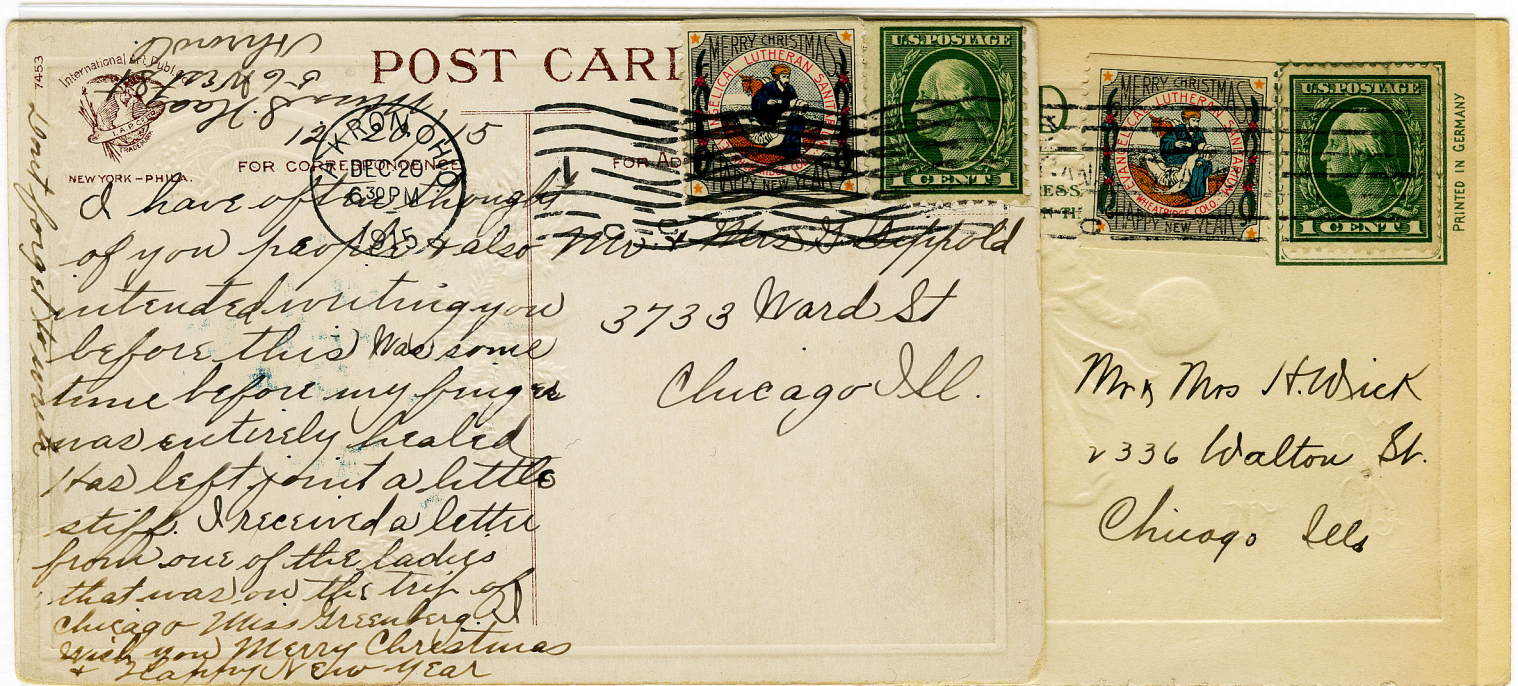 7453
International Art Publ
I.A.P.C
TRADEMARK
NEW YORK – PHILA.
POST CAR
FOR CORRESPONDENCE
FOR AD
56 West
12/20/15
AKRON, OHIO
DEC 20
6:30 PM
1915
MERRY CHRISTMAS
EVANGELICAL LUTHERAN SANITARIUM
HAPPY NEW YEAR
U.S. POSTAGE
1 CENT 1
I have often thought
of you people & also
intended writing you
before this Was some
time before my finger
was entirely healed
Has left joint a little
stiff. I received a letter
from one of the ladies
that was on the trip of
Chicago Miss Greenberg. I
Wish you Merry Christmas
& Happy New Year
Dont forget to write
Mr & Mrs G Dippold
3733 Ward St
Chicago Ill.
MERRY CHRISTMAS
EVANGELICAL LUTHERAN SANITARIUM
WHEATRIDGE COLO.
HAPPY NEW YEAR
U.S. POSTAGE
1 CENT 1
D
RESS
PRINTED IN GERMANY
Mr & Mrs H. Wick
2336 Walton St.
Chicago Ills